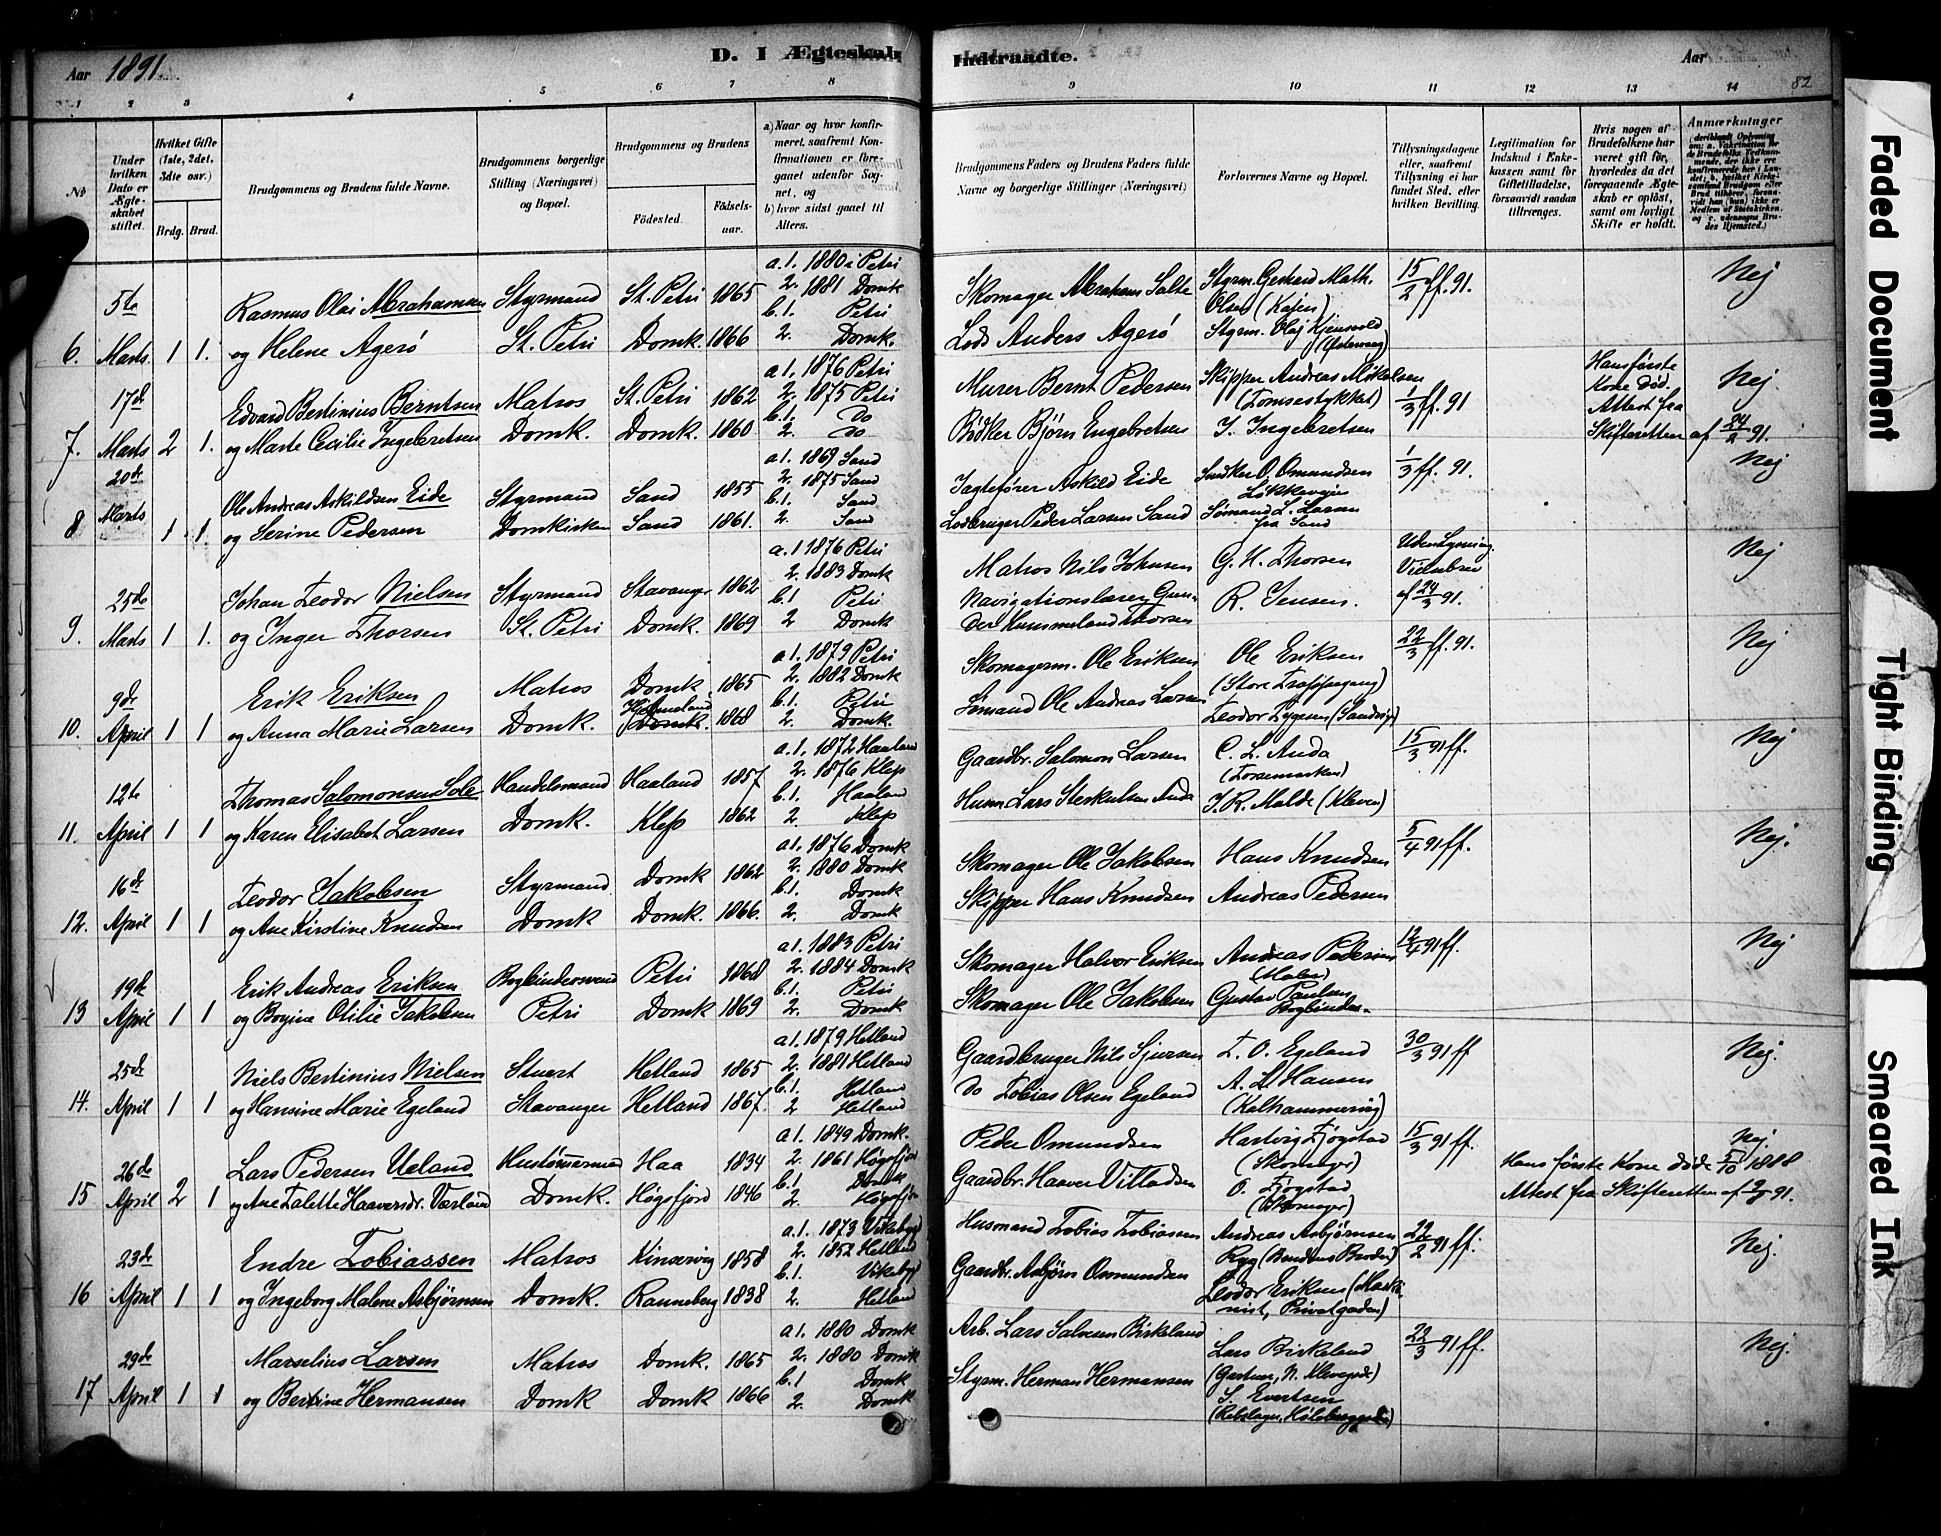 Aar 1891.
D. I Ægteskab Indtraadte.
Aar
82
1 2 3 4 5 6 7 8 9 10 11 12 13 14
No
Under hvilken Dato er Ægteskabet stiftet.
Hvilket Gifte (1ste, 2det, 3die osv.)
Brdg. Brud.
Brudgommens og Brudens fulde Navne.
Brudgommens borgerlige Stilling (Næringsvei) og Bopæl.
Brudgommens og Brudens
Fødested.
Fødselsaar.
a) Naar og hvor konfirmeret, saafremt Konfirmationen er foregaaet udenfor Sognet, og
b) hvor sidst gaaet til Alters.
Brudgommens Faders og Brudens Faders fulde Navne og borgerlige Stillinger (Næringsvei)
Forlovernes Navne og Bopæl.
Tillysningsdagene eller, saafremt Tillysning ei har fundet Sted, efter hvilken Bevilling.
Legitimation for Indskud i Enkekassen samt for Giftetilladelse, forsaavidt saadan tiltrænges.
Hvis nogen af Brudefolkene har været gift før, hvorledes da det foregaaende Ægteskab er opløst, samt om lovligt Skifte er holdt.
Anmærkninger
6. 5te Marts 1 1.
Rasmus Olai Abrahamsen Styrmand St. Petri 1865
og Helene Agerø St. Petri Domk. 1866
a.1. 1880 i Petri
2. 1881 Domk
b.1. Petri
2. Domk.
Skomager Abraham Salte
Lods Anders Agerø
Styrm. Gerhard Math. Olsen
Styrm. Olaj Kjensvold
15/2 ff. 91.
Nej
7. 17d Marts 2 1.
Edvard Bertinius Berntsen Matros St. Petri 1862
og Marte Cecilie Ingebretsen Domk. Domk. 1860
a.1. 1876 Petri
2. 1875 Petri
b.1. Do
2. Do
Murer Bernt Pedersen
Bødker Bjørn Engebretsen
Skipper Andreas Mikalsen
(Tomsestykket)
I. Ingebretsen
1/3 ff. 91
Hans første
Kone Død.
Attest fra
Skifteretten af 24/2 91.
Nej
8 20de Marts 1 1.
Ole Andreas Askildsen Eide Styrmand Sand 1855
og Serine Pedersen Domkirken Sand 1861.
a.1. 1869 Sand
2. 1875 Sand
b.1. Sand
2. Sand
Jagtefører Askild Eide
Lodbruger Peder Larsen Sand
Snedker O. Omundsen
Løkkeveien
Sømand L. Larsen
fra Sand
1/3 ff. 91.
Nej
9. 25de Marts 1 1.
Johan Teodor Nielsen Styrmand Stavanger 1862
og Inger Thorsen St. Petri Domk. 1869
a.1 1876 Petri
2. 1883 Domk
b.1 Petri
2 Domk
Matros Nils Johnsen
Navigationslærer Gunder Hummeland Thorsen
G. H. Thorsen
R. Jensen.
Uden Lysning.
Vielsebrev
af 24/3 91.
Nej
10. 9de April 1 1
Erik Eriksen Matros Domk 1865
og Anna Marie Larsen Domk. Domk. 1868
a.1. 1879 Petri
2. 1882 Domk
b.1. Petri
2. Domk.
Skomagerm. Ole Eriksen
Sømand Ole Andreas Larsen
Ole Eriksen
Teodor Tygesen (Sandvigs)
22/3 ff. 91.
Nej
11. 12te April 1 1
Thomas Salomonsen Sole Handelsmand Haaland 1857
og Karen Elisabet Larsen Domk. Klep 1862
a.1. 1872 Haaland
2. 1876 Klep
b.1. Haaland
2. Klep
Gaardbr. Salomon Larsen
Husm Lars Sterkulsen Anda
C. L. Anda
I. R. Malde (Kleven)
15/3 91 ff.
Nej
12. 16de April 1 1
Teodor Jakobsen Styrmand Domk 1862
og Ane Kirstine Knudsen Domk Domk. 1866.
a1. 1876 Domk
2. 1880 Domk
b.1. Domk
2. Domk
Skomager Ole Jakobsen
Skipper Hans Knudsen
Hans Knudsen
Andreas Pedersen
5/4 91 ff.
Nej.
13 19de April 1 1
Erik Andreas Eriksen Bogbindersvend Petri 1868
og Bogine Otilie Jakobsen Petri Domk 1869
a1. 1883 Petri
2. 1884 Domk
b.1. Petri
2. Domk
Skomager Halvor Eriksen
Skomager Ole Jakobsen
Andreas Pedersen
(Maler)
Gustav Paulsen
Bogbinder.
12/4 91 ff.
Nej
14. 25de April 1 1
Niels Bertinius Nielsen Stuert Hetland 1865
og Hansine Marie Egeland Stavanger Hetland 1867.
a1. 1879 Hetland
2. 1881 Hetland
b.1. Hetland
2 Hetland
Gaardbruger Nils Sjursen
do Tobias Olsen Egeland
T. O. Egeland
A. L. Hansen
(Kalhammervig)
30/3 91 ff
Nej.
15 26de April 2 1
Lars Pedersen Ueland Hustømmermand Haa 1834
og Ane Talette Haaversdr. Værland Domk. Høgsfjord 1846
a1. 1849 Domk.
2. 1861 Høgsfjord
b.1 Domk
2. Høgsfjord
Peder Omundsen
Gaardbr. Haaver Villadsen
Hartvig Fjøgstad
(Skomager)
O. Fjøgstad
(Skomager)
15/3 91 ff.
Hans første Kone døde 5/10 1888
Attest fra Skifteretten af 91.
Nej
16 23de April 1 1
Endre Tobiassen Matros Kinservig 1858
og Ingeborg Malene Asbjørnsen Domk. Ranneberg 1838
a.1. 1873 Vikebygd
2. 1852 Hetland
b.1. Vikebygd
2. Hetland
Husmand Tobias Tobiassen
Gaardbr. Asbjørn Osmundsen
Andreas Asbjørnsen
Ryg (Brudens Broder)
Teodor Eriksen (Maskinist, Privatgaden)
22/2 91 ff.
Nej.
17 29de April 1 1
Marselius Larsen Matros Domk. 1865
og Bertine Hermansen Domk Domk 1866
a1. 1880 Domk
2. 1880 Domk
b.1 Domk
2. Domk
Arb. Lars Salvesen Birkeland
Styrm. Herman Hermansen
Lars Birkeland
S. Evertsen
22/3 91 ff.
Nej.
Faded Document
Tight Binding
Smeared Ink